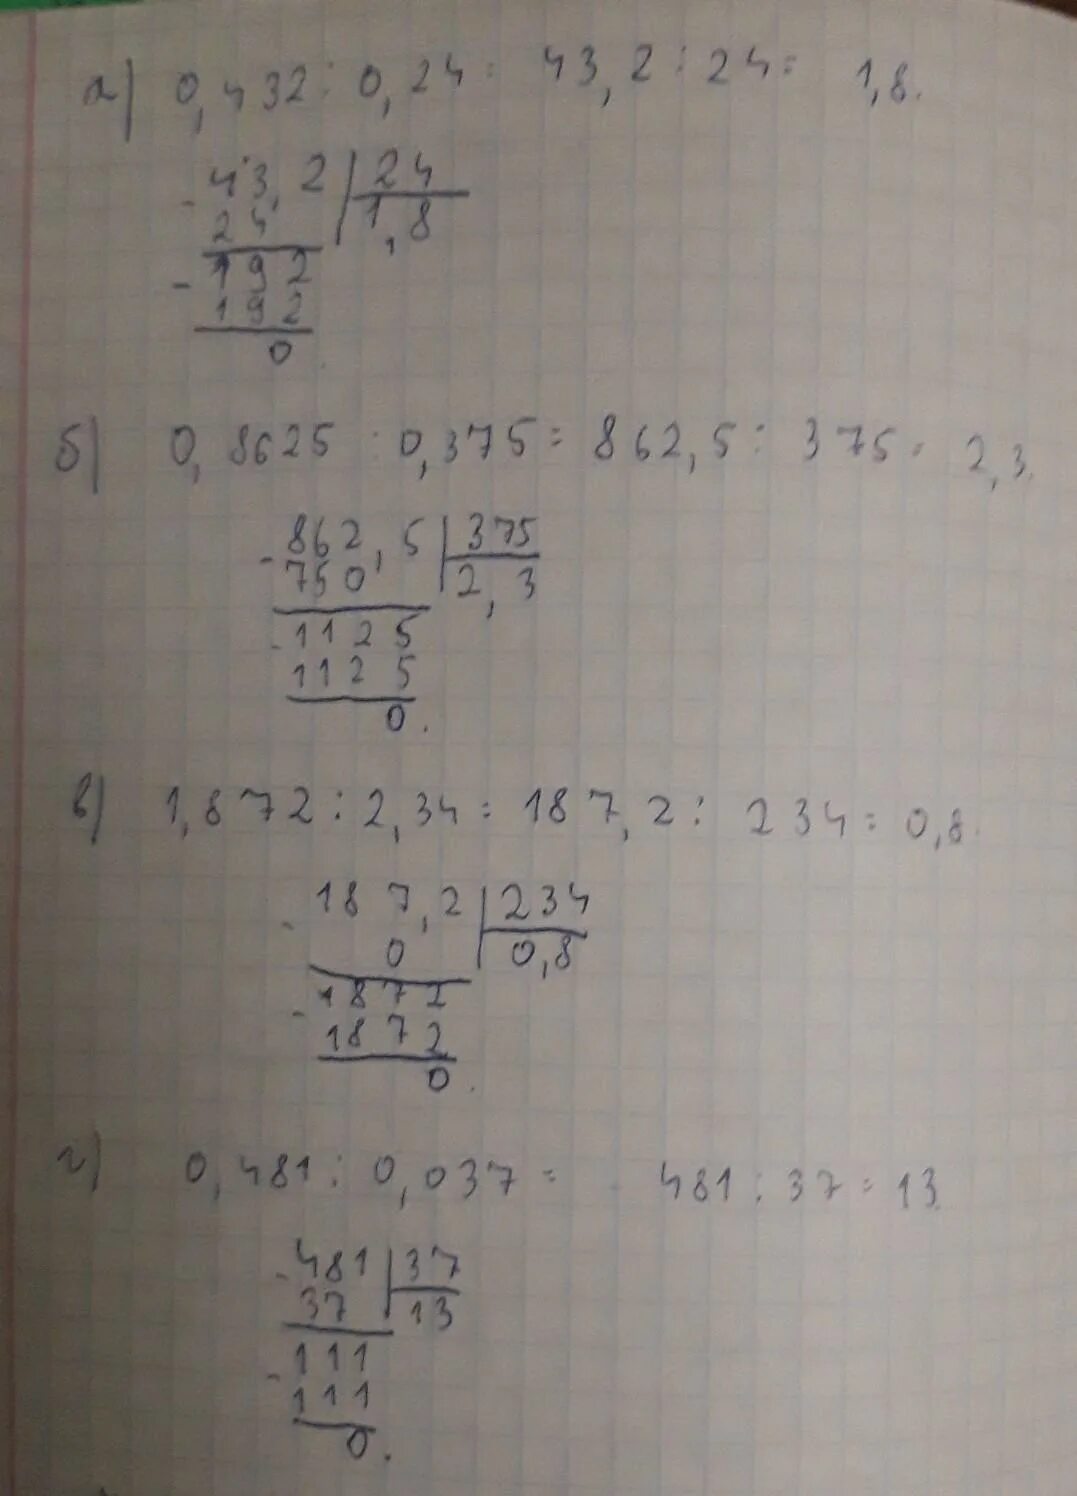 а) 0,432 : 0,24 = 43,2 : 24 = 1,8.
- 43,2 | 24
24 | 1,8
- 192
192
0
б) 0,8625 : 0,375 = 862,5 : 375 = 2,3.
- 862,5 | 375
750 | 2,3
- 1125
1125
0.
в) 1,872 : 2,34 = 187,2 : 234 = 0,8.
- 187,2 | 234
0 | 0,8
- 1872
1872
0.
г) 0,481 : 0,037 = 481 : 37 = 13.
- 481 | 37
37 | 13
- 111
111
0.